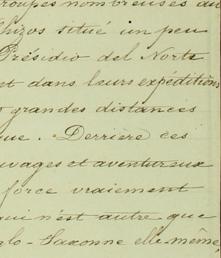 roupes nombreuses au
Chizos situé un peu
Présidio del Norte
nt dans leurs expéditions
grandes distances
que. Derrière ces
uvages et aventureux
force vraiment
qui n'est autre que
glo-Saxonne elle-même,